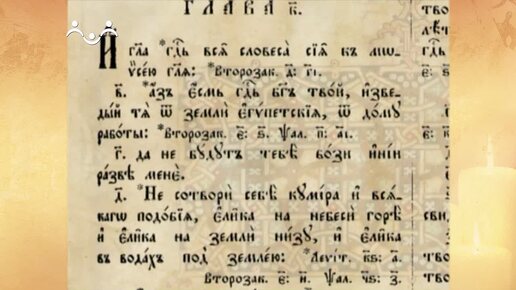 ГЛАВА̀ К҃.
И҆ гл҃а гдⷭ҇ь всѧ̑ словеса̀ сїѧ̑ къ мѡ-
ѵ̈се́ю гл҃ѧ: *Второзак. д҃: г҃і.
в҃. *А҆́зъ є҆́смь гдⷭ҇ь бг҃ъ тво́й, и҆зве-
ды́й тѧ̀ ѿ землѝ є҆гѵ́петскїѧ, ѿ до́мꙋ
рабо́ты: *Второзак. є҃: ѕ҃. Ѱал. п҃: а҃і.
г҃. да не бꙋ́дꙋтъ тебѣ̀ бо́зи и҆ні́и
ра́звѣ менє̀.
д҃. *Не сотворѝ себѣ̀ кꙋмі́ра и҆ всѧ́-
кагѡ подо́бїѧ, є҆ли̑ка на небесѝ горѣ̀
и҆ є҆ли̑ка на землѝ ни́зꙋ, и҆ є҆ли̑ка
въ вода́хъ под̾ земле́ю: *Леѵіт. к҃ѕ: а҃.
Второзак. є҃: и҃. Ѱал. ч҃ѕ: з҃.
тво
гдⷭ҇ь
тво
тво